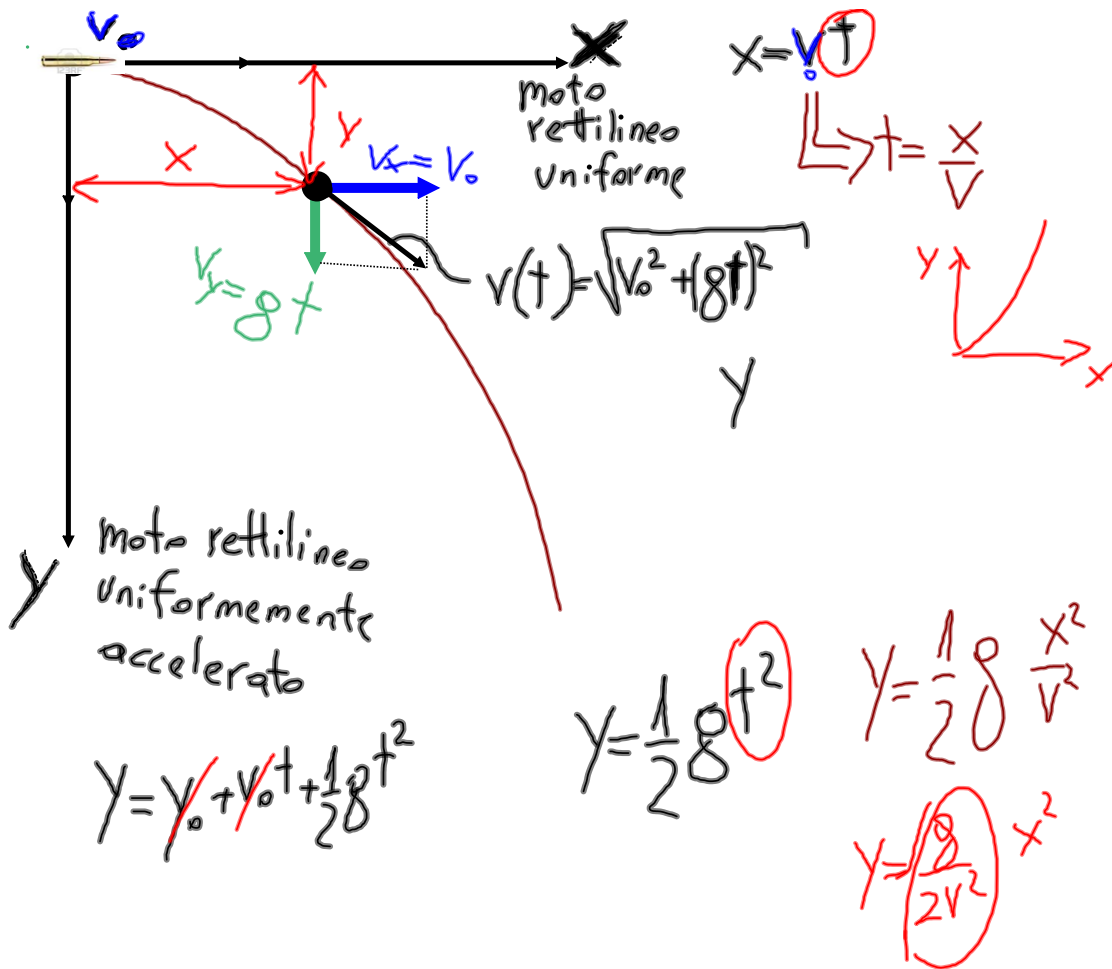 v₀
x
x = v₀t
moto
rettilineo
uniforme
t = x/v
x
y
vₓ = v₀
v_y = g t
v(t) = √(v₀² + (gt)²)
y
x
y
y
moto rettilineo
uniformemente
accelerato
y = y₀ + v₀t + 1/2 g t²
y = 1/2 g t²
y = 1/2 g x²/v²
y = g/2v² x²